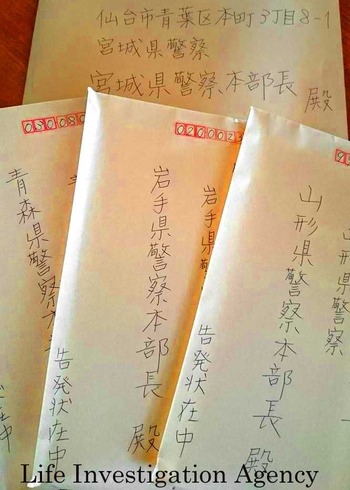 仙台市青葉区本町3丁目8-1
宮城県警察
宮城県警察本部長 殿
山形県警察
山形県警察本部長 殿
0200023
岩手県警察
岩手県警察本部長 殿
告発状在中
030080
青森県警察本
告発状在中
Life Investigation Agency